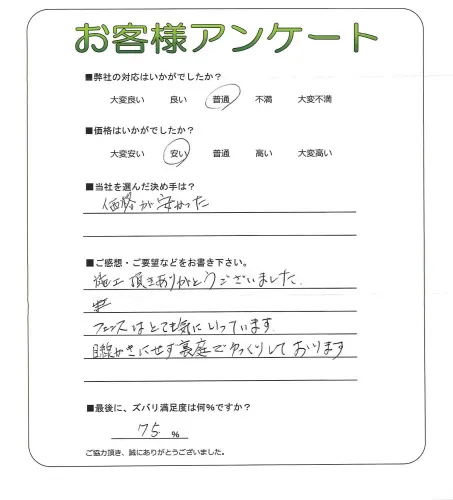 お客様アンケート
■弊社の対応はいかがでしたか？
大変良い 良い 普通 不満 大変不満
■価格はいかがでしたか？
大変安い 安い 普通 高い 大変高い
■当社を選んだ決め手は？
価格が安かった
■ご感想・ご要望などをお書き下さい。
施工頂きありがとうございました.
フェンスはとても気にいっています.
目線がきにせず裏庭でゆっくりしております
■最後に、ズバリ満足度は何%ですか？
75 %
ご協力頂き、誠にありがとうございました。